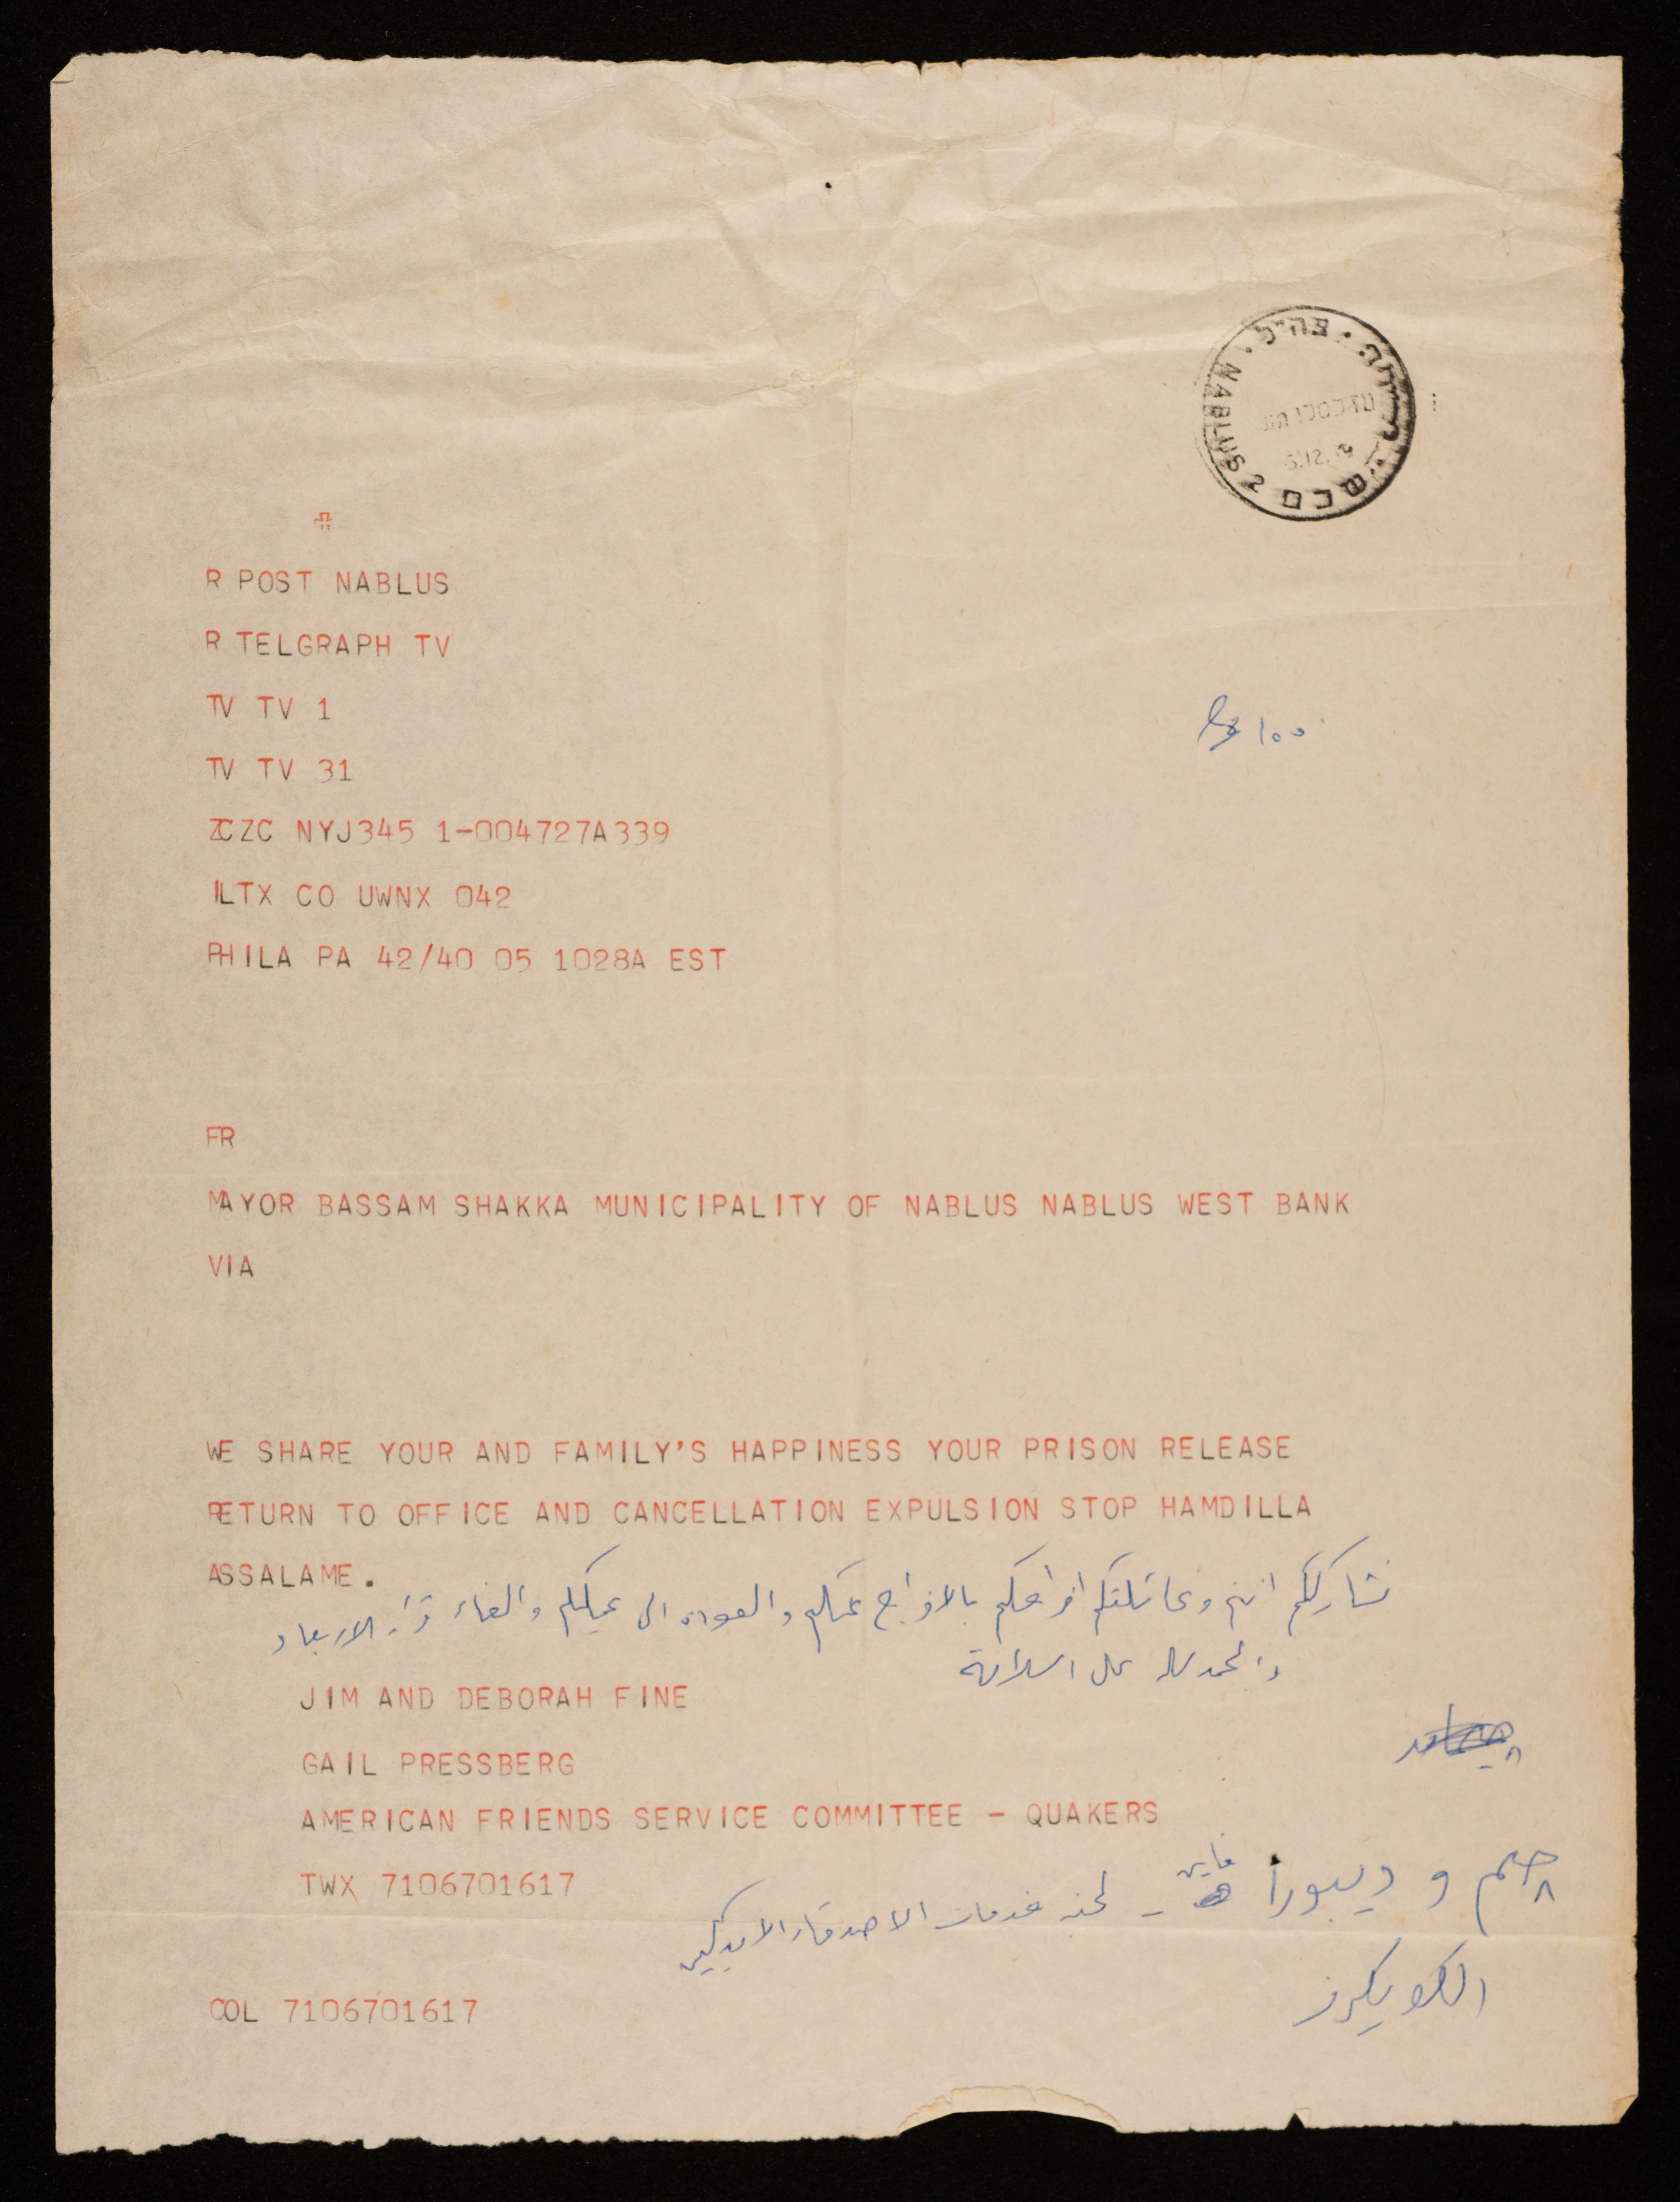 צה״ל
NABLUS
שכם 2
R POST NABLUS
R TELGRAPH TV
TV TV 1
TV TV 31
ZCZC NYJ345 1-004727A339
ILTX CO UWNX 042
PHILA PA 42/40 05 1028A EST
FR
MAYOR BASSAM SHAKKA MUNICIPALITY OF NABLUS NABLUS WEST BANK
VIA
WE SHARE YOUR AND FAMILY'S HAPPINESS YOUR PRISON RELEASE
RETURN TO OFFICE AND CANCELLATION EXPULSION STOP HAMDILLA
ASSALAME.
نشارككم انتم وعائلتكم افراحكم بالافراج عنكم والعودة الى عملكم والغاء قرار الابعاد
والحمد لله على السلامة
JIM AND DEBORAH FINE
GAIL PRESSBERG
AMERICAN FRIENDS SERVICE COMMITTEE - QUAKERS
TWX 7106701617
جيم و ديبورا فاين - لجنة خدمات الاصدقاء الامريكيين
الكويكرز
COL 7106701617